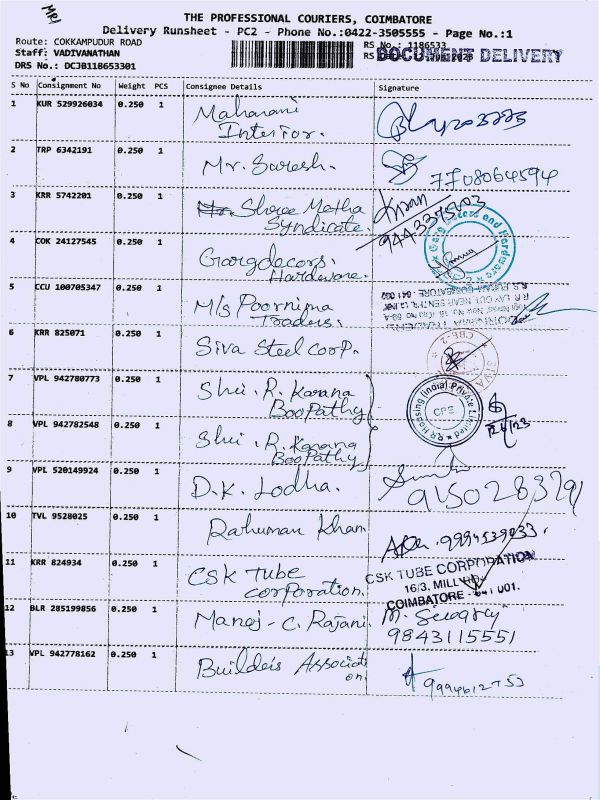 THE PROFESSIONAL COURIERS, COIMBATORE
Delivery Runsheet - PC2 - Phone No.:0422-3505555 - Page No.:1
Route: COKKAMPUDUR ROAD
RS No.: 1186533
Staff: VADIVANATHAN
DOCUMENT DELIVERY
DRS No.: DCJB118653301
S No Consignment No Weight PCS Consignee Details Signature
1 KUR 529926034 0.250 1 Maharani
Interior.
2 TRP 6342191 0.250 1 Mr. Suresh.
7708064594
3 KRR 5742201 0.250 1 Shree Metha
Syndicate.
Kiran
9443375703
4 COK 24127545 0.250 1 Gargdecors.
Hardware.
5 CCU 100705347 0.250 1 M/s Poornima
Traders.
POORNIMA TRADERS
6 KRR 825071 0.250 1 Siva Steel Corp.
SIVA
CBE-2
7 VPL 942780773 0.250 1 Shri. R. Karana
BooPathy
R.R Housing (India) Private Limited
CPE
8 VPL 942782548 0.250 1 Shri. R. Karana
BooPathy
9 VPL 520149924 0.250 1 D.K. Lodha.
10 TVL 9528025 0.250 1 Rahuman Khan
11 KRR 824934 0.250 1 CSK TUBE
corporation.
CSK TUBE CORPORATION
16/3, MILL
COIMBATORE - 641 001.
12 BLR 285199856 0.250 1 Manoj - C. Rajani.
9843115551
13 VPL 942778162 0.250 1 Builders Associati
on.
9994612753